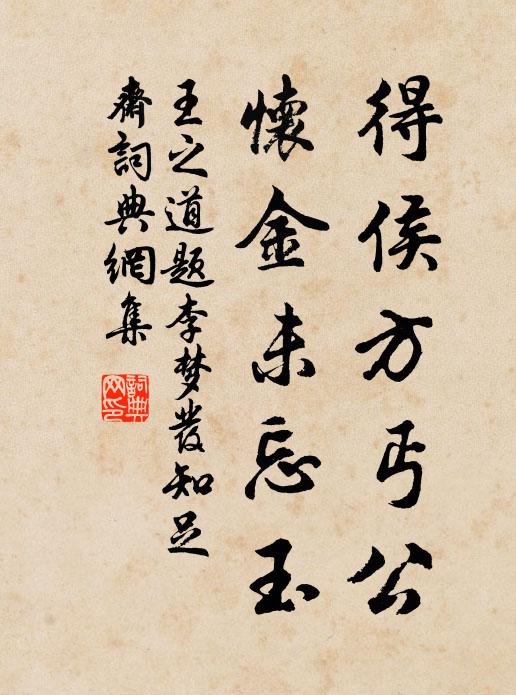 得侯方丐公
懷金未忘玉
王之道題李梦發知足
齋詞典網集
詞典
网印